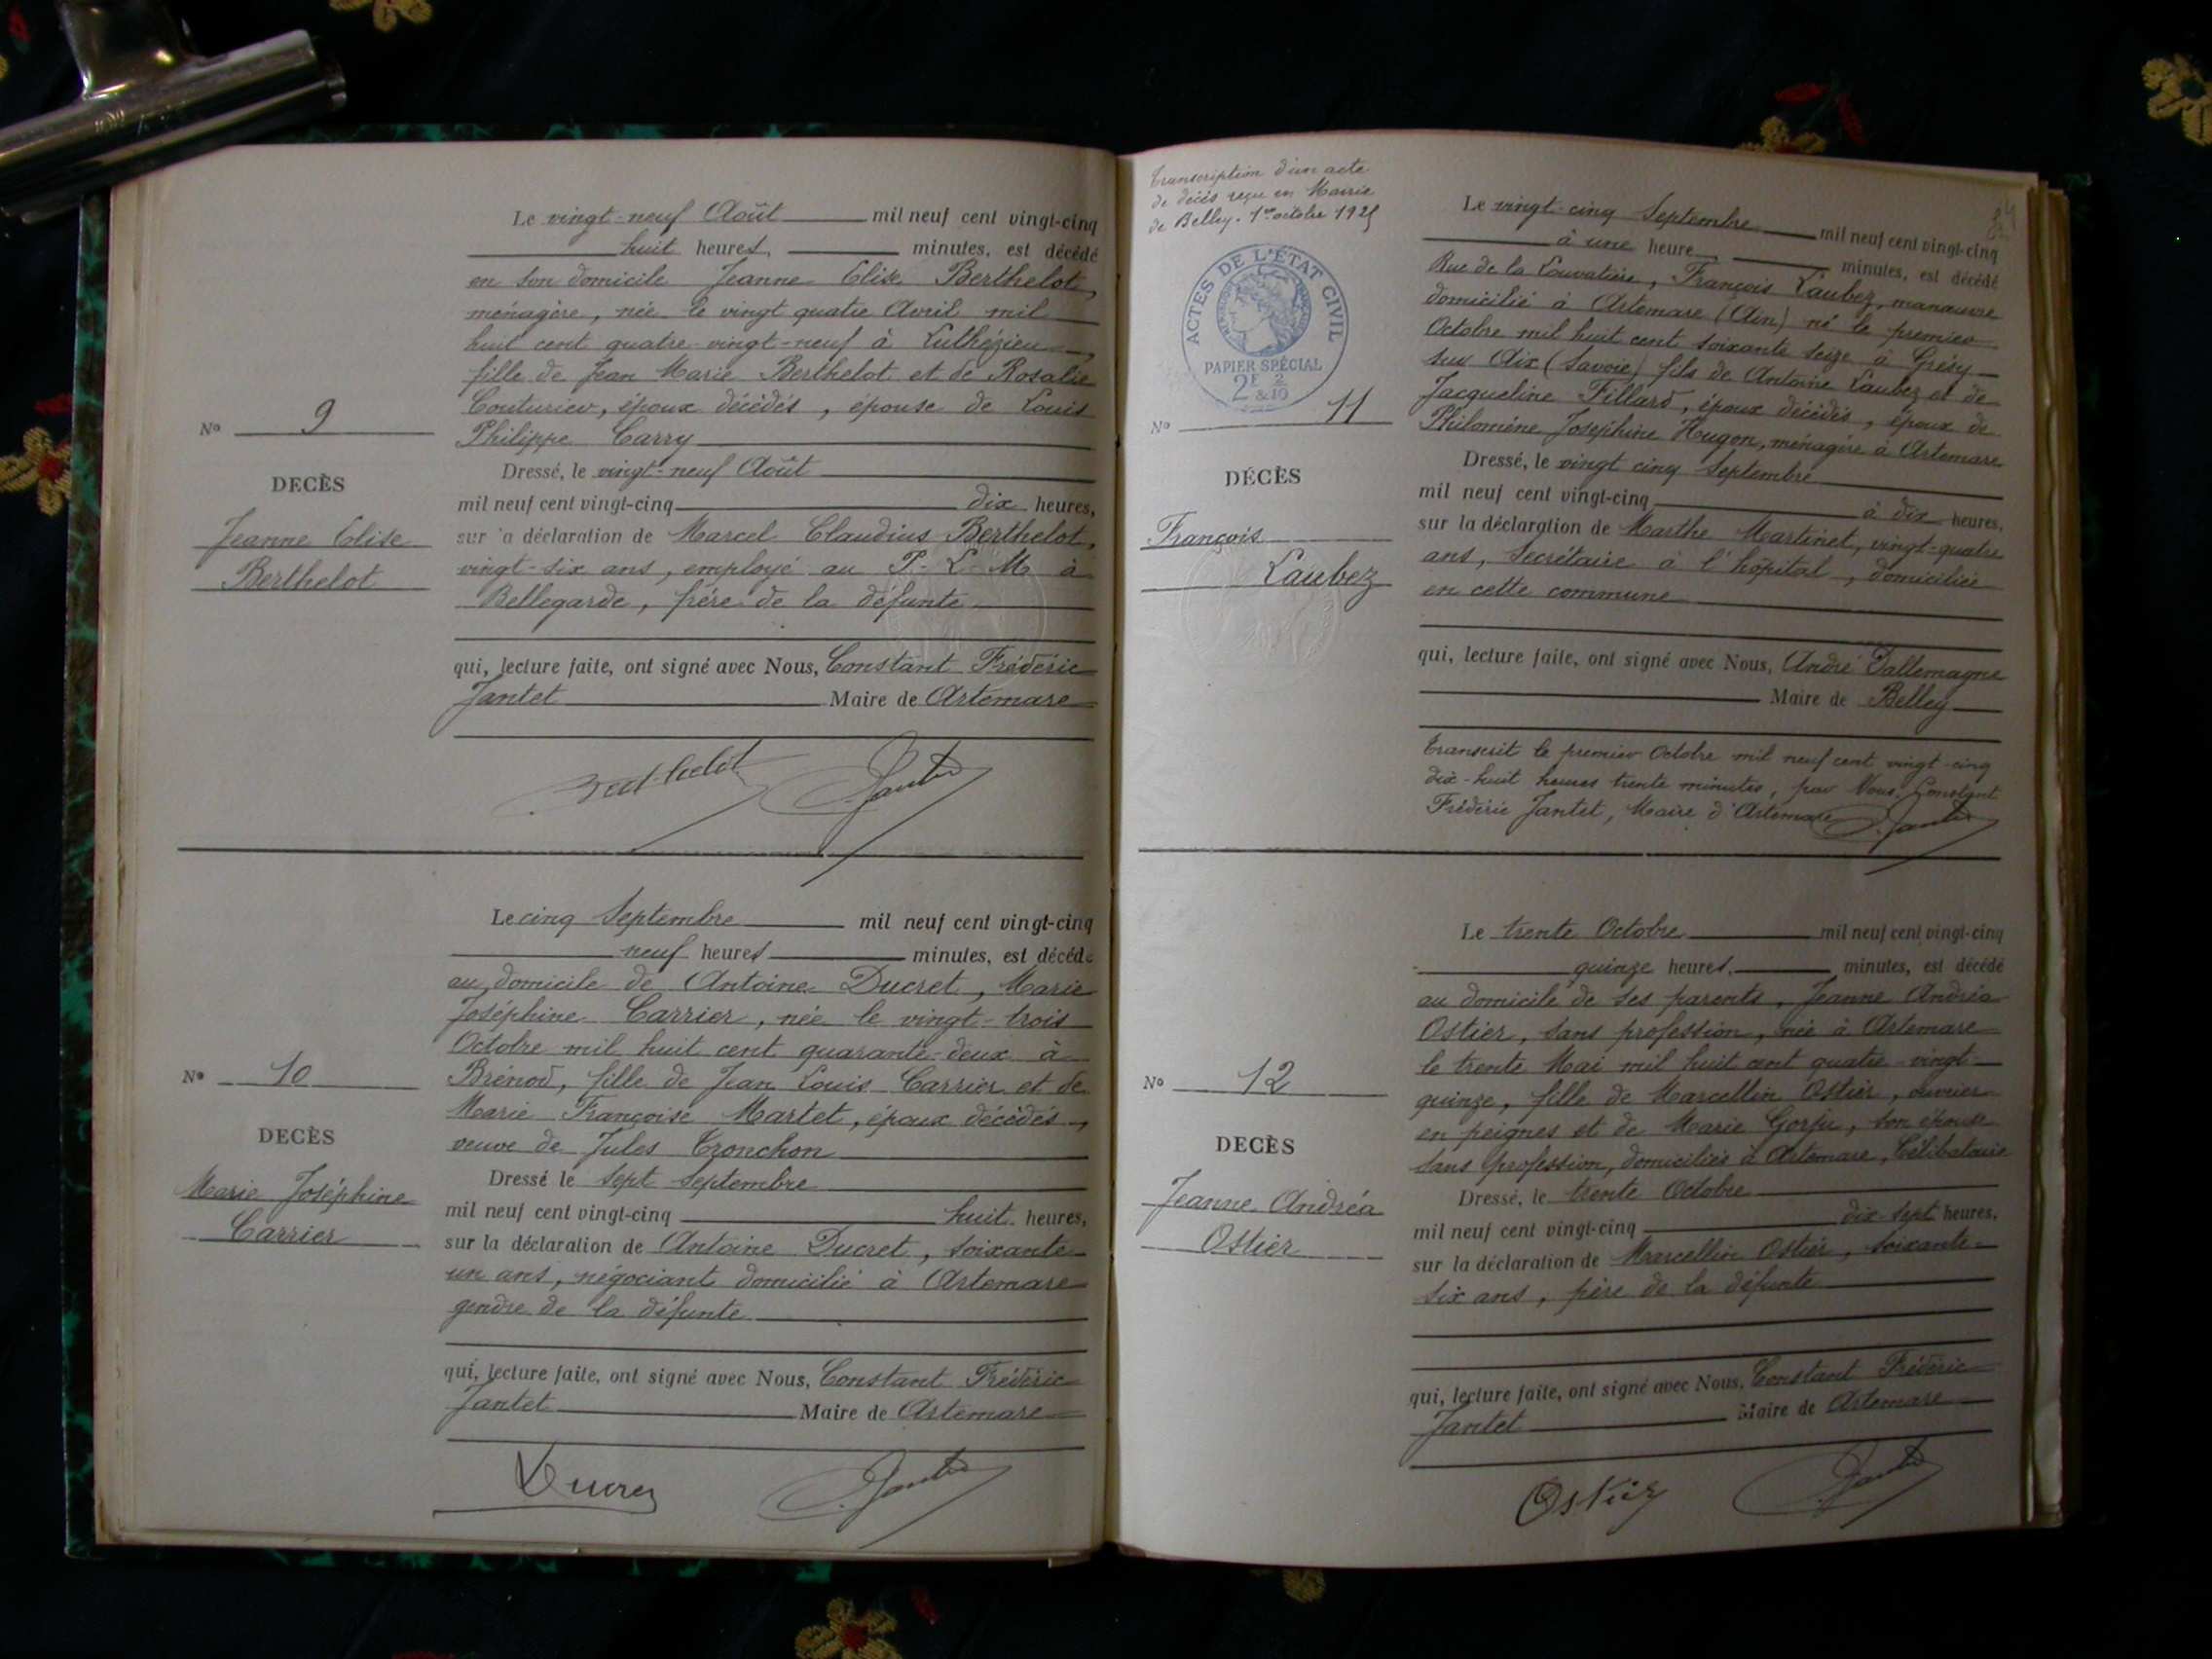 Le vingt-neuf Août mil neuf cent vingt-cinq
huit heures, minutes, est décédé
en son domicile Jeanne Elise Berthelot,
ménagère, née le vingt quatre Avril mil
huit cent quatre-vingt-neuf à Luthézieu,
fille de Jean Marie Berthelot et de Rosalie
Couturier, époux décédés, épouse de Louis
Philippe Carry
Nº 9
DECÈS
Jeanne Elise
Berthelot
Dressé, le vingt-neuf Août
mil neuf cent vingt-cinq dix heures,
sur a déclaration de Marcel Claudius Berthelot,
vingt-six ans, employé au P.-L-M à
Bellegarde, frère de la défunte
qui, lecture faite, ont signé avec Nous, Constant Frédéric
Jantet Maire de Artemare
Berthelot Jantet
Le cinq Septembre mil neuf cent vingt-cinq
neuf heures minutes, est décédé
au domicile de Antoine Ducret, Marie
Joséphine Carrier, née le vingt-trois
Octobre mil huit cent quarante-deux à
Brénod, fille de Jean Louis Carrier et de
Marie Françoise Martet, époux décédés,
veuve de Jules Tronchon
Nº 10
DECÈS
Marie Joséphine
Carrier
Dressé le sept Septembre
mil neuf cent vingt-cinq huit heures,
sur la déclaration de Antoine Ducret, soixante-
un ans, négociant domicilié à Artemare
gendre de la défunte
qui, lecture faite, ont signé avec Nous, Constant Frédéric
Jantet Maire de Artemare
Ducret Jantet
Transcription d'un acte
de décès reçu en Mairie
de Belley. 1er octobre 1925
84
ACTES DE L'ÉTAT CIVIL
PAPIER SPÉCIAL
2F 2/10
Nº 11
DÉCÈS
François
Laubez
Le vingt-cinq Septembre mil neuf cent vingt-cinq
à une heure minutes, est décédé
Rue de la Louvatière, François Laubez, manœuvre
domicilié à Artemare (Ain) né le premier
Octobre mil huit cent soixante seize à Grésy
sur Aix (Savoie) fils de Antoine Laubez et de
Jacqueline Fillard, époux décédés, époux de
Philomène Joséphine Hugon, ménagère à Artemare
Dressé, le vingt cinq Septembre
mil neuf cent vingt-cinq à dix heures,
sur la déclaration de Marthe Martinet, vingt-quatre
ans, Secrétaire à l'hôpital, domiciliée
en cette commune
qui, lecture faite, ont signé avec Nous, André Dallemagne
Maire de Belley
Transcrit le premier Octobre mil neuf cent vingt-cinq
dix-huit heures trente minutes, par Nous, Constant
Frédéric Jantet, Maire d'Artemare Jantet
Le trente Octobre mil neuf cent vingt-cinq
quinze heures, minutes, est décédé
au domicile de ses parents, Jeanne Andréa
Ostier, sans profession, née à Artemare
le trente Mai mil huit cent quatre-vingt-
quinze, fille de Marcellin Ostier, ouvrier
en peignes et de Marie Gorju, son épouse
sans profession, domiciliés à Artemare, Célibataire
Nº 12
DECÈS
Jeanne Andréa
Ostier
Dressé, le trente Octobre
mil neuf cent vingt-cinq dix-sept heures,
sur la déclaration de Marcellin Ostier, soixante-
six ans, père de la défunte
qui, lecture faite, ont signé avec Nous, Constant Frédéric
Jantet Maire de Artemare
Ostier Jantet